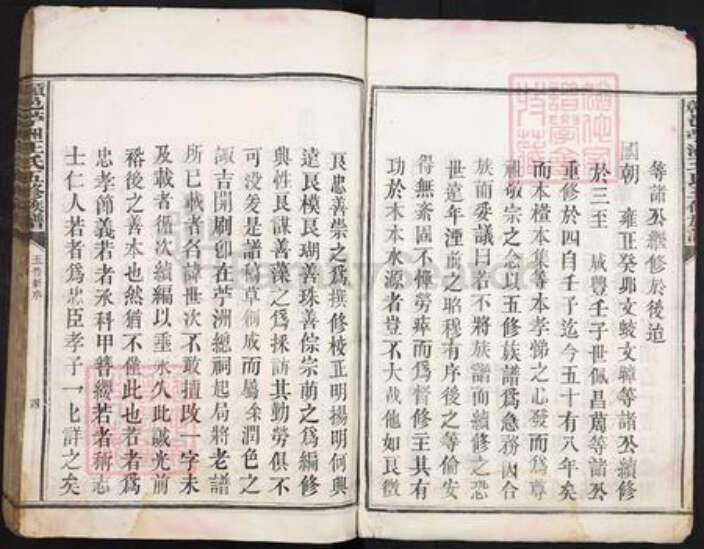 等諸公繼修於後迨
國朝 雍正癸卯文綾文驊等諸公續修
於三至 咸豐壬子世佩昌蔄等諸公
重修於四自壬子迄今五十有八年矣
而木樁本集等本孝悌之心發而為尊
祖敬宗之念以五修族譜為急務因合
族而妥議曰若不將族譜而續修之恐
世遠年湮前之昭穆有序後之等倫安
得無紊固不憚勞瘁而為督修主其有
功於木本水源者豈不大哉他如艮徵
艮忠善崇之為撰修校正明揚明何與
遠艮模艮瑚善珠善倧宗萌之為編修
與性艮謀善藻之為採訪其勤勞俱不
可没爰是譜稿草創成而屬余潤色之
諏吉開刷即在苧洲總祠起局將老譜
所已載者名諱世次不敢擅改一字未
及載者循次續編以垂永久此誠光前
裕後之善本也然猶不僅此也若者為
忠孝節義若者承科甲簪纓若者稱志
士仁人若者為忠臣孝子一七詳之矣
苧洲王氏五修族譜
四
FamilySearch